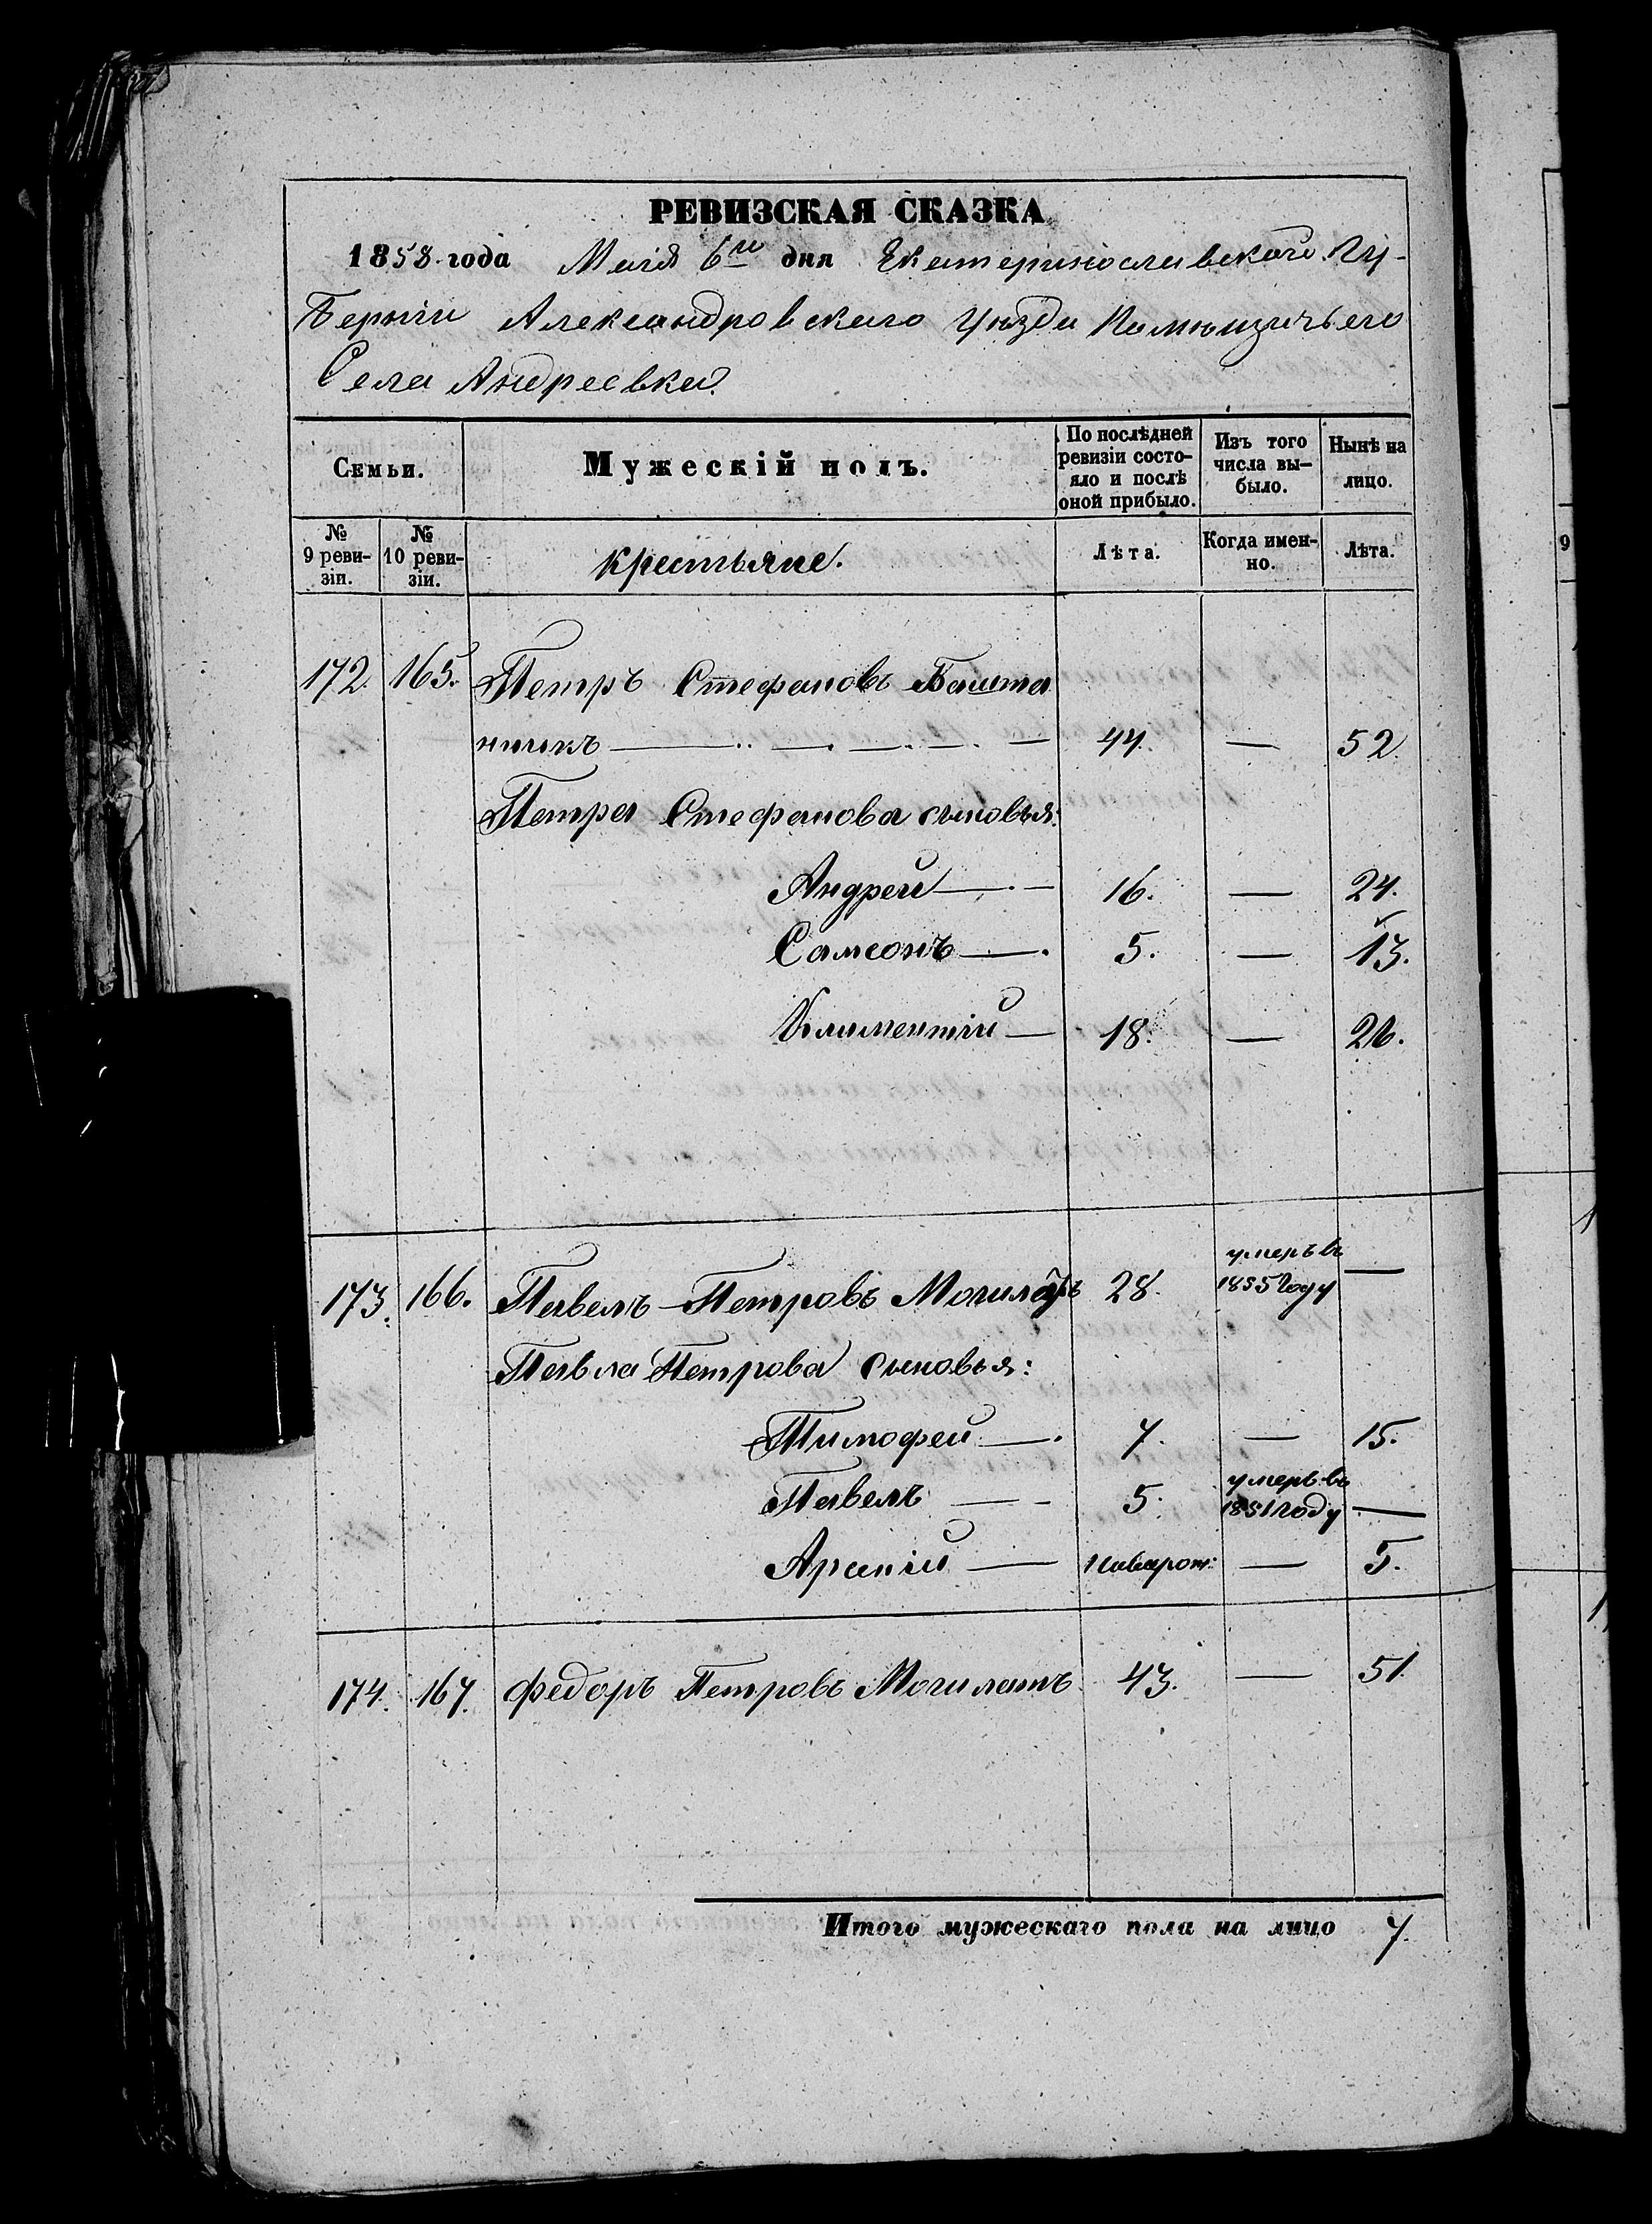 РЕВИЗСКАЯ СКАЗКА
1858 года Маія 6го дня Екатеринославской Гу-
берніи Александровскаго Уѣзда Помѣщичьего
Села Андреевки.
Семьи. Мужескій полъ. По послѣдней ревизіи состояло и послѣ оной прибыло. Изъ того числа выбыло. Нынѣ на лицо.
№ 9 ревизіи. № 10 ревизіи. крестьяне. Лѣта. Когда именно. Лѣта.
172. 165. Петръ Стефановъ Башта
нникъ — 44. — 52.
Петра Стефанова сыновья:
Андрей — 16. — 24.
Самсонъ — 5. — 13.
Климентій — 18. — 26.
173. 166. Павелъ Петровъ 28. умеръ въ 1855 году —
Павла Петрова сыновья:
Тимофей — 7. — 15.
Павелъ — 5. умеръ въ 1851 году —
Арсеній — новорож: — 5.
174. 167. Федоръ Петровъ 43. — 51.
Итого мужескаго пола на лицо 7.
9